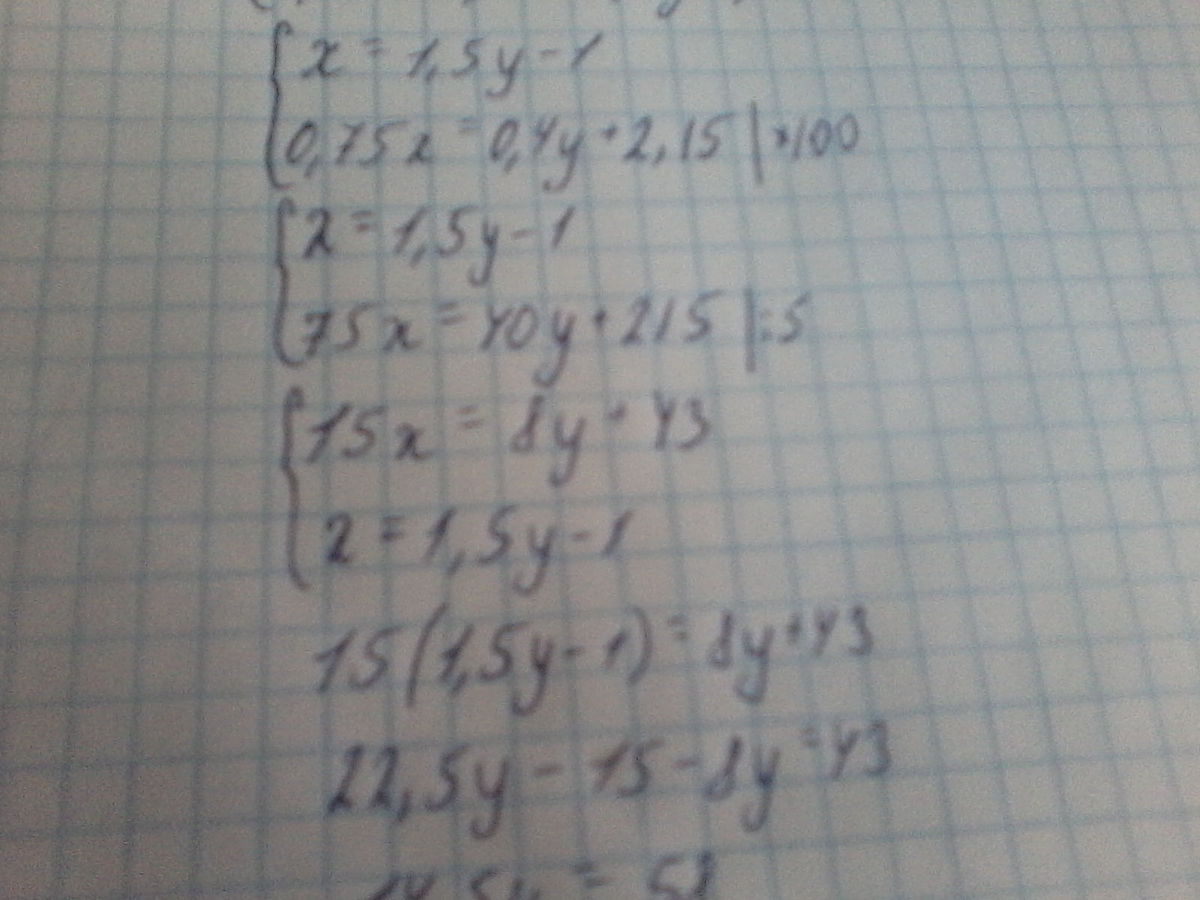 x = 1,5y - 1
0,75x = 0,4y + 2,15 | *100
x = 1,5y - 1
75x = 40y + 215 | :5
15x = 8y + 43
x = 1,5y - 1
15(1,5y - 1) = 8y + 43
22,5y - 15 - 8y = 43
14,5y = 58